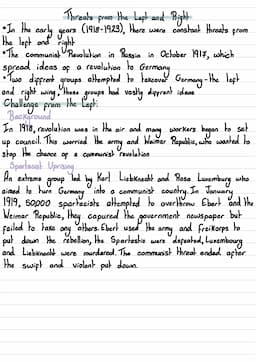 Threats from the Left and Right
•In the early years (1918-1923), there were constant threats from
the left and right
•The communist Revolution in Russia in October 1917, which
spread ideas of a revolution to Germany
•Two different groups attempted to takeover Germany - the left
and right wing, these groups had vastly different ideas
Challenge from the Left:
Background
In 1918, revolution was in the air and many workers began to set
up council. This worried the army and Weimar Republic, who wanted to
stop the chance of a communist revolution
Spartacist Uprising
An extreme group led by Karl Liebknecht and Rosa Luxemburg who
aimed to turn Germany into a communist country. In January
1919, 50,000 spartacists attempted to overthrow Ebert and the
Weimar Republic, they capured the government newspaper but
failed to take any others. Ebert used the army and Freikorps to
put down the rebellion, the Spartastic were defeated, Luxembourg
and Liebknecht were murdered. The communist threat ended after
the swift and violent put down.